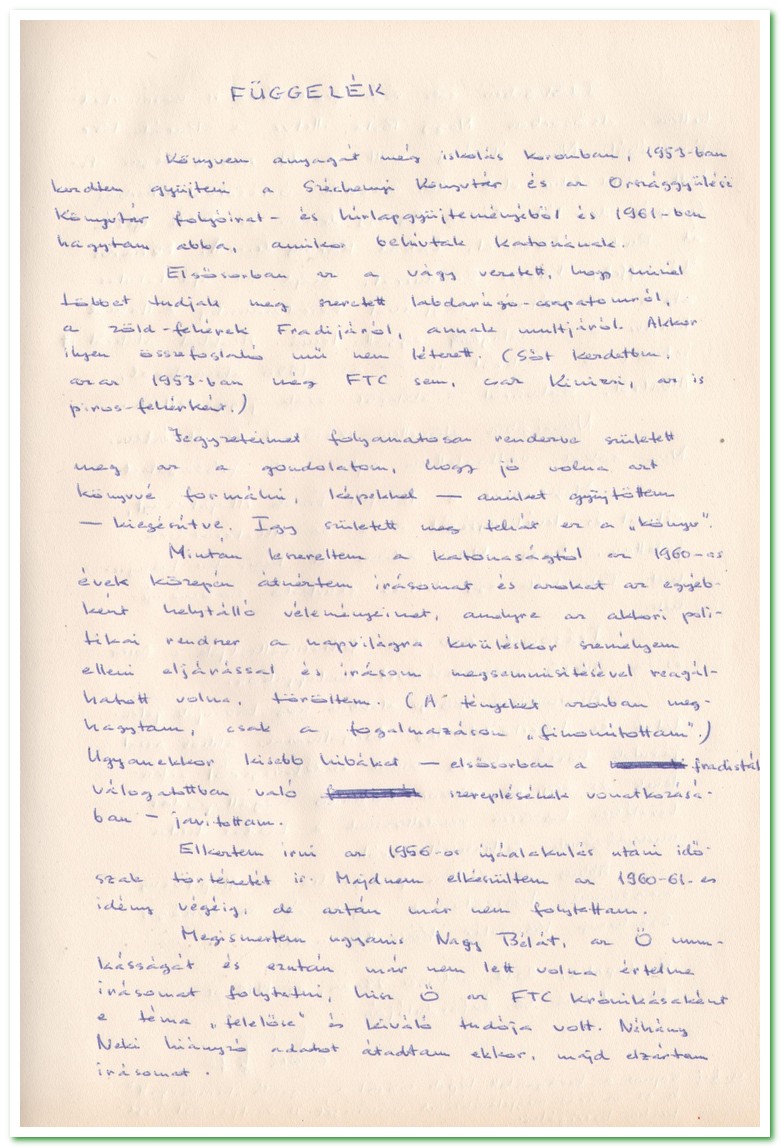 FÜGGELÉK
Könyvem anyagát még iskolás koromban, 1953-ban
kezdtem gyüjteni a Széchenyi Könyvtár és az Országgyülési
Könyvtár folyóirat- és hírlapgyüjteményéből és 1961-ben
hagytam abba, amikor behívtak katonának.
Elsősorban az a vágy vezetett, hogy minél
többet tudjak meg szeretett labdarúgó-csapatomról,
a zöld-fehérek Fradijáról, annak multjáról. Akkor
ilyen összefoglaló mü nem létezett. (Sőt kezdetben,
azaz 1953-ban még FTC sem, csak Kinizsi, az is
piros-fehérként.)
Jegyzeteimet folyamatosan rendezve született
meg az a gondolatom, hogy jó volna azt
könyvvé formálni, képekkel — amiket gyüjtöttem
— kiegészítve. Igy született meg tehát ez a „könyv".
Miután leszereltem a katonaságtól az 1960-as
évek közepén átnéztem írásomat és azokat az egyéb-
ként helytálló véleményeimet, amelyre az akkori poli-
tikai rendszer a napvilágra kerüléskor személyem
elleni eljárással és írásom megsemmisítésével reagál-
hatott volna, töröltem. (A tényeket azonban meg-
hagytam, csak a fogalmazáson „finomítottam".)
Ugyanekkor kisebb hibákat — elsősorban a fradisták
válogatottban való szereplésének vonatkozásá-
ban — javítottam.
Elkeztem írni az 1956-os újáalakulás utáni idő-
szak történetét is. Majdnem elkészültem az 1960-61-es
idény végéig, de aztán már nem folytattam.
Megismertem ugyanis Nagy Bélát, az Ő mun-
kásságát és ezután már nem lett volna értelme
írásomat folytatni, hisz Ő az FTC krónikásaként
e téma „felelőse" és kiváló tudója volt. Néhány
Neki hiányzó adatot átadtam ekkor, majd elzártam
írásomat.